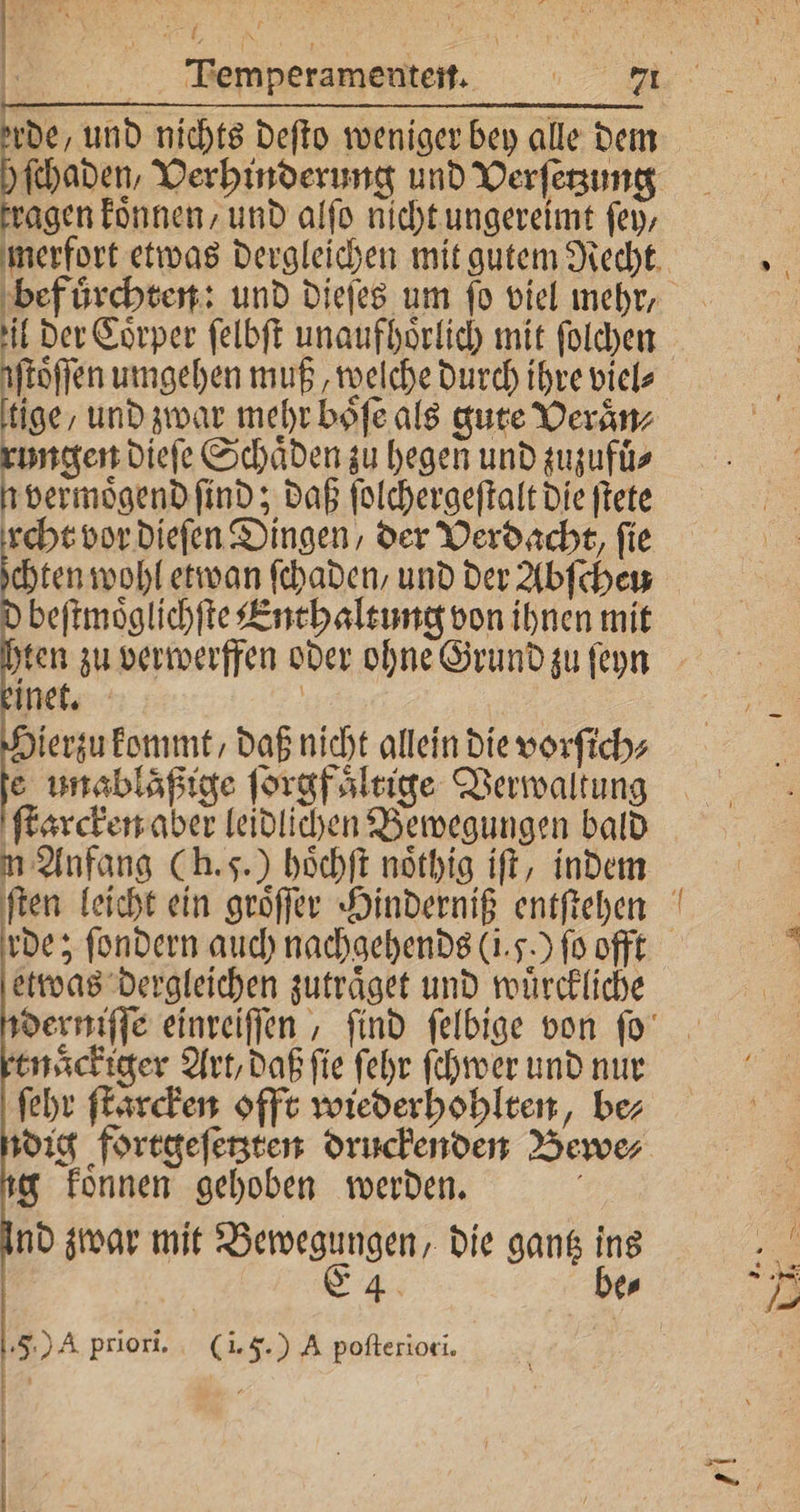 Temperamenten. 71
erde, und nichts deſto weniger bey alle dem
ſchaden, Verhinderung und Verſetzung
tragen koͤnnen, und alſo nicht ungereimt ſey,
merfort etwas dergleichen mit gutem Recht
befuͤrchten: und dieſes um ſo viel mehr,
eil der Coͤrper ſelbſt unaufhoͤrlich mit ſolchen
nſtoͤſſen umgehen muß, welche durch ihre viel⸗
ltige, und zwar mehr boͤſe als gute Veraͤn⸗
rungen dieſe Schaͤden zu hegen und zuzufuͤ⸗
n vermoͤgend ſind; daß ſolchergeſtalt die ſtete
rcht vor dieſen Dingen, der Verdacht, ſie
oͤchten wohl etwan ſchaden, und der Abſcheu
d beſtmoͤglichſte Enthaltung von ihnen mit
hten zu verwerffen oder ohne Grund zu ſeyn
einet.
Hierzu kommt, daß nicht allein die vorſich⸗
e unablaͤßige ſorgfaͤltige Verwaltung
ſtarcken aber leidlichen Bewegungen bald
n Anfang (h. §.) hoͤchſt noͤthig iſt, indem
ſten leicht ein groͤſſer Hinderniß entſtehen
rde; ſondern auch nachgehends (i. §.) ſo offt
etwas dergleichen zutraͤget und wuͤrckliche
nderniſſe einreiſſen, ſind ſelbige von ſo
rtnaͤckiger Art, daß ſie ſehr ſchwer und nur
ſehr ſtarcken offt wiederhohlten, be⸗
ndig fortgeſetzten druckenden Bewe⸗
ng koͤnnen gehoben werden.
Und zwar mit Bewegungen, die gantz ins
E 4 be⸗
.§.) A priori. (i. §.) A poſteriori.